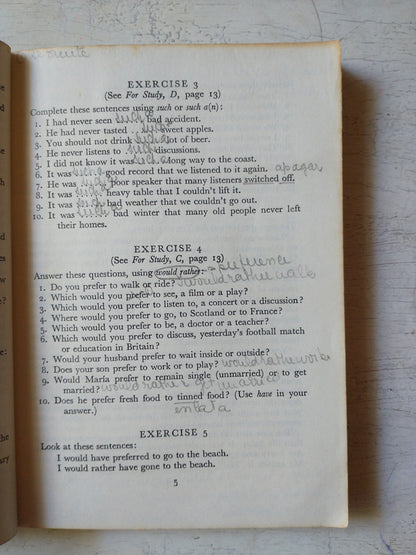 EXERCISE 3
(See For Study, D, page 13)
Complete these sentences using such or such a(n):
1. I had never seen such a bad accident.
2. He had never tasted such sweet apples.
3. You should not drink such a lot of beer.
4. He never listens to such discussions.
5. I did not know it was such a long way to the coast.
6. It was such a good record that we listened to it again. apagar
7. He was such a poor speaker that many listeners switched off.
8. It was such heavy table that I couldn't lift it.
9. It was such bad weather that we couldn't go out.
10. It was such bad winter that many old people never left
their homes.
EXERCISE 4
(See For Study, C, page 13)
Answer these questions, using would rather: = preference
1. Do you prefer to walk or ride? I would rather walk
2. Which would you prefer to see, a film or a play?
3. Which would you prefer to listen to, a concert or a discussion?
4. Where would you prefer to go, to Scotland or to France?
5. Which would you prefer to be, a doctor or a teacher?
6. Which would you prefer to discuss, yesterday's football match
or education in Britain?
7. Would your husband prefer to wait inside or outside?
8. Does your son prefer to work or to play? would rather work
9. Would María prefer to remain single (unmarried) or to get
married? would rather get married
10. Does he prefer fresh food to tinned food? (Use have in your
answer.) enlata
EXERCISE 5
Look at these sentences:
I would have preferred to go to the beach.
I would rather have gone to the beach.
5